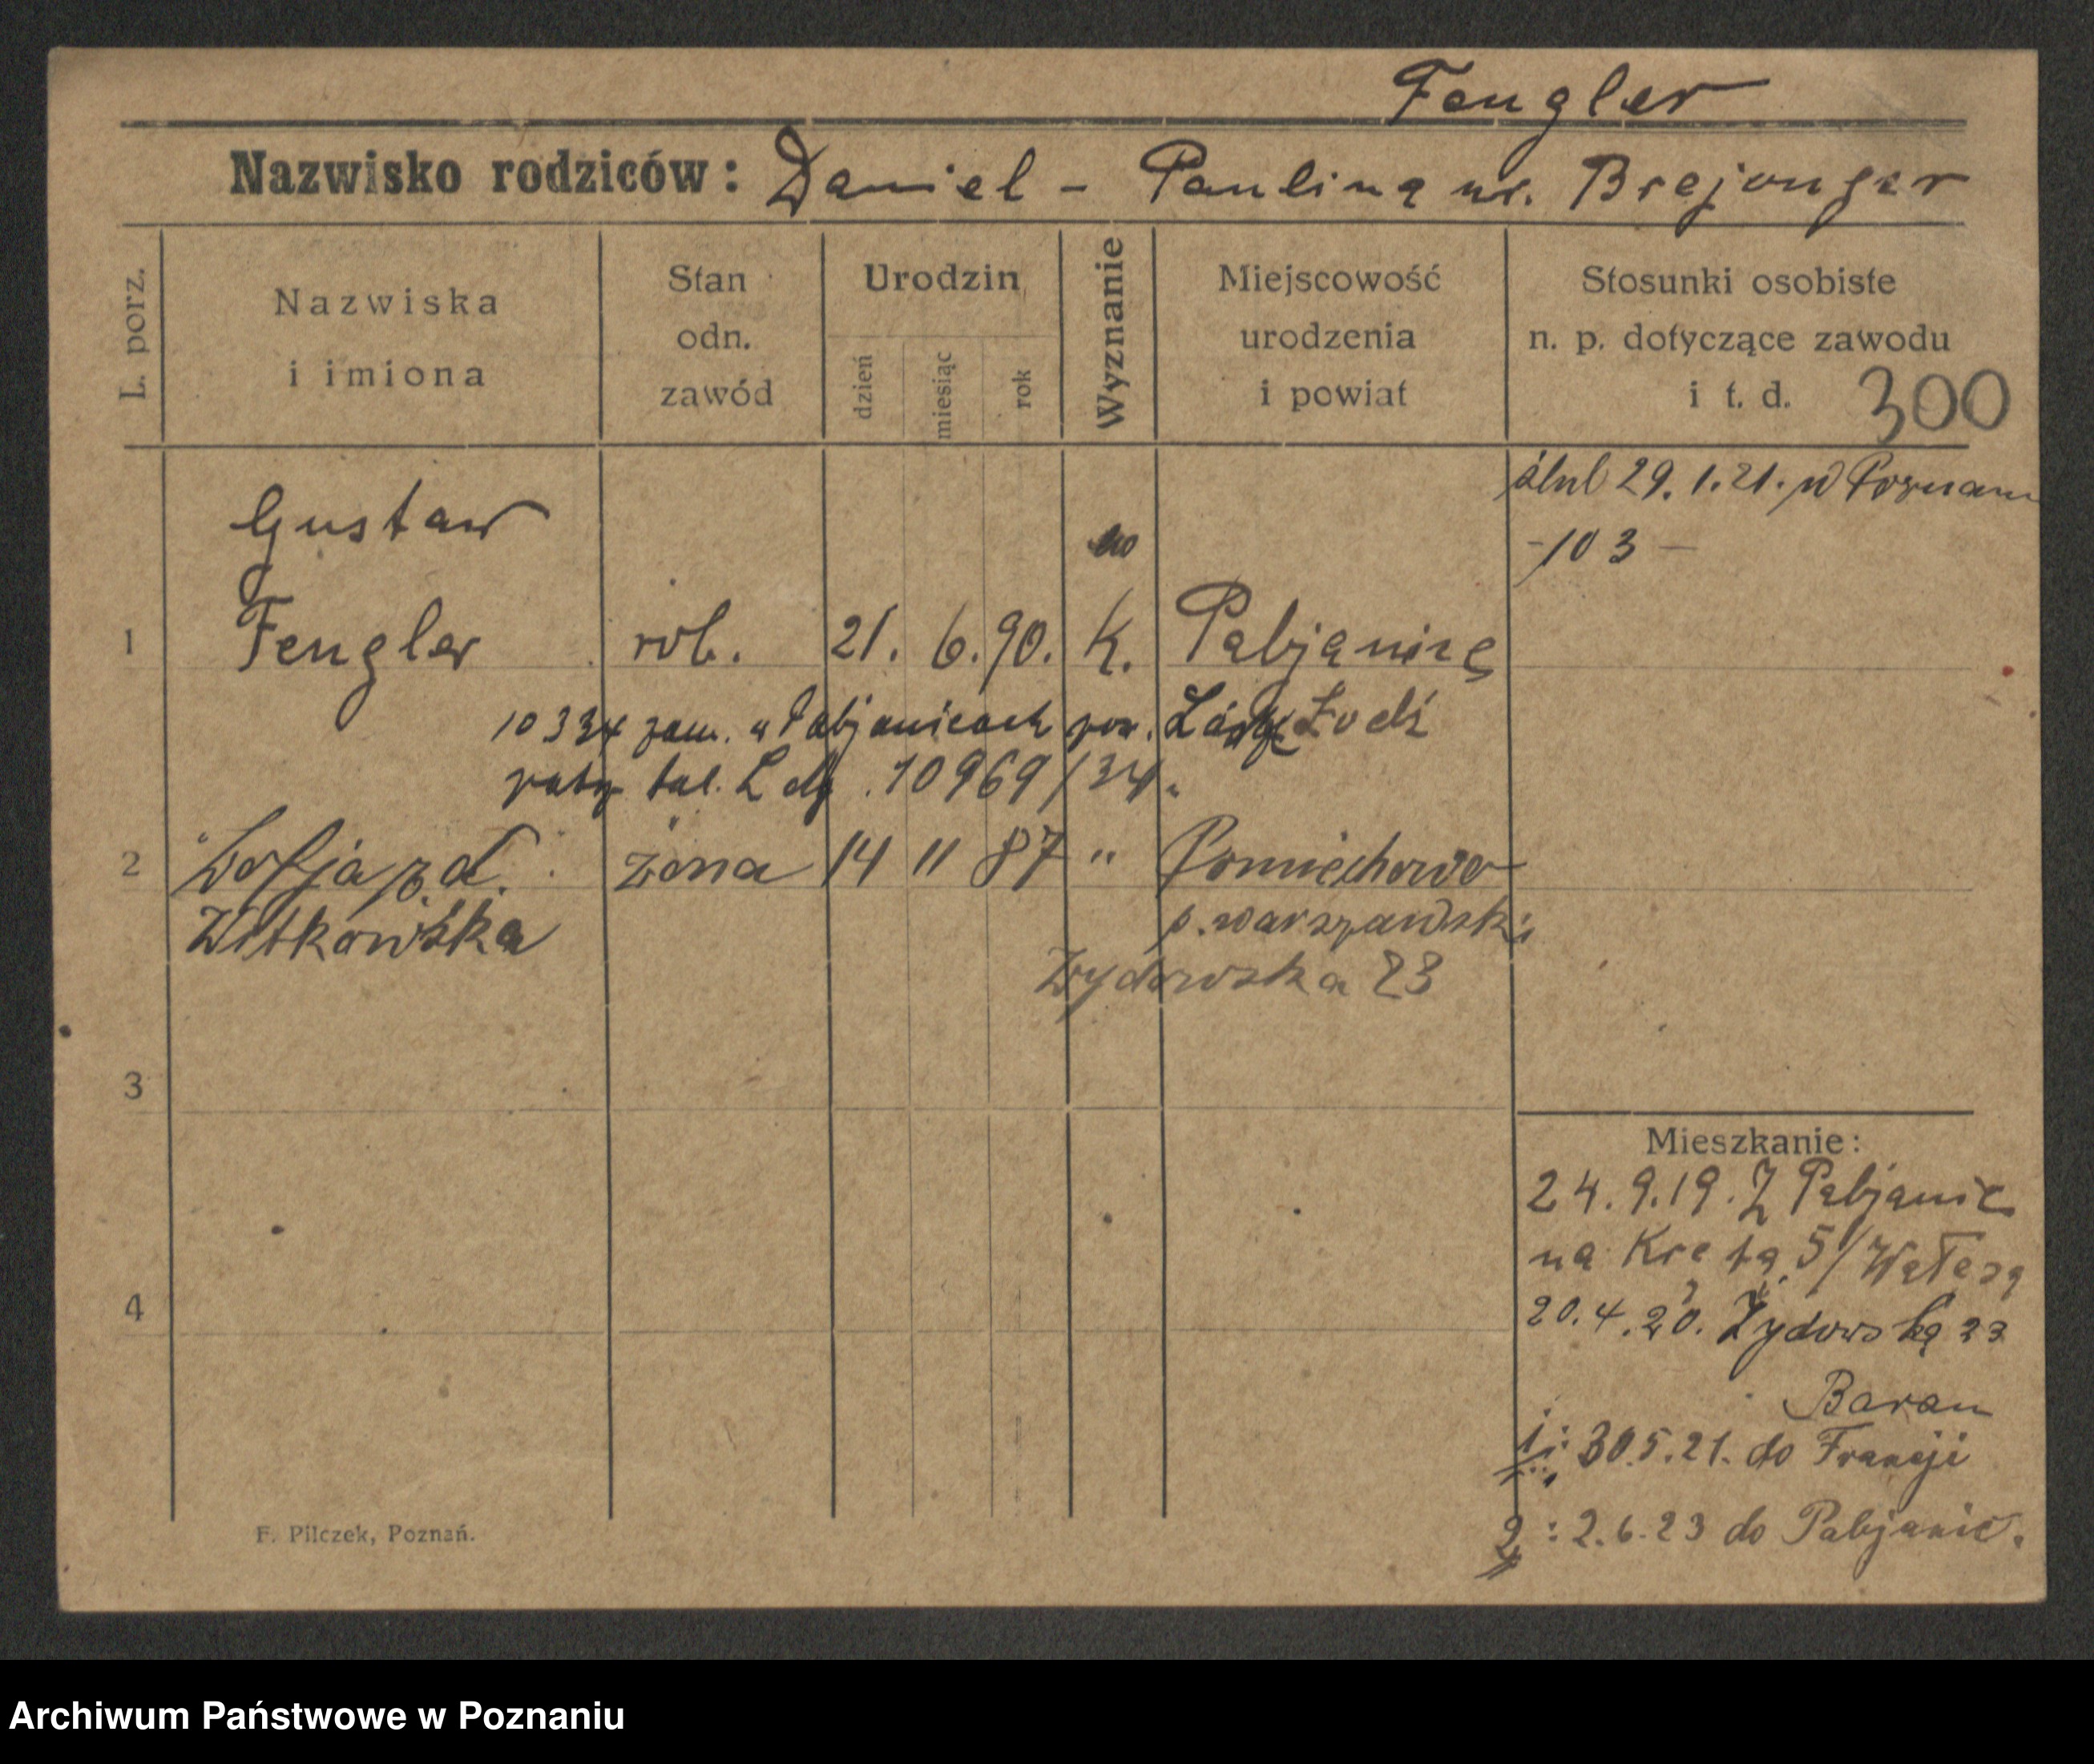 Fengler
Nazwisko rodziców: Daniel - Paulina ur. Brejonger
L. porz.
Nazwiska
i imiona
Stan
odn.
zawód
Urodzin
dzień
miesiąc
rok
Wyznanie
Miejscowość
urodzenia
i powiat
Stosunki osobiste
n. p. dotyczące zawodu
i t. d. 300
ślub 29.1.21. w Poznaniu
-103-
Gustaw
1 Fengler rob. 21. 6. 90. K. Pabjanice
10334 zam. w Pabjanicach pow. Łódź
tut. L dz. 10969/34.
2 Zofja z d. żona 14 " 87 " Pomiechowo
Witkowska p. warszawski
Żydowska 23
3
4
Mieszkanie:
24.9.19. Z Pabjanic
na Krętą 5/
20.4.20. Żydowską 23
Baran
1: 30.5.21. do Francji
2: 2.6.23 do Pabjanic.
F. Pilczek, Poznań.
Archiwum Państwowe w Poznaniu